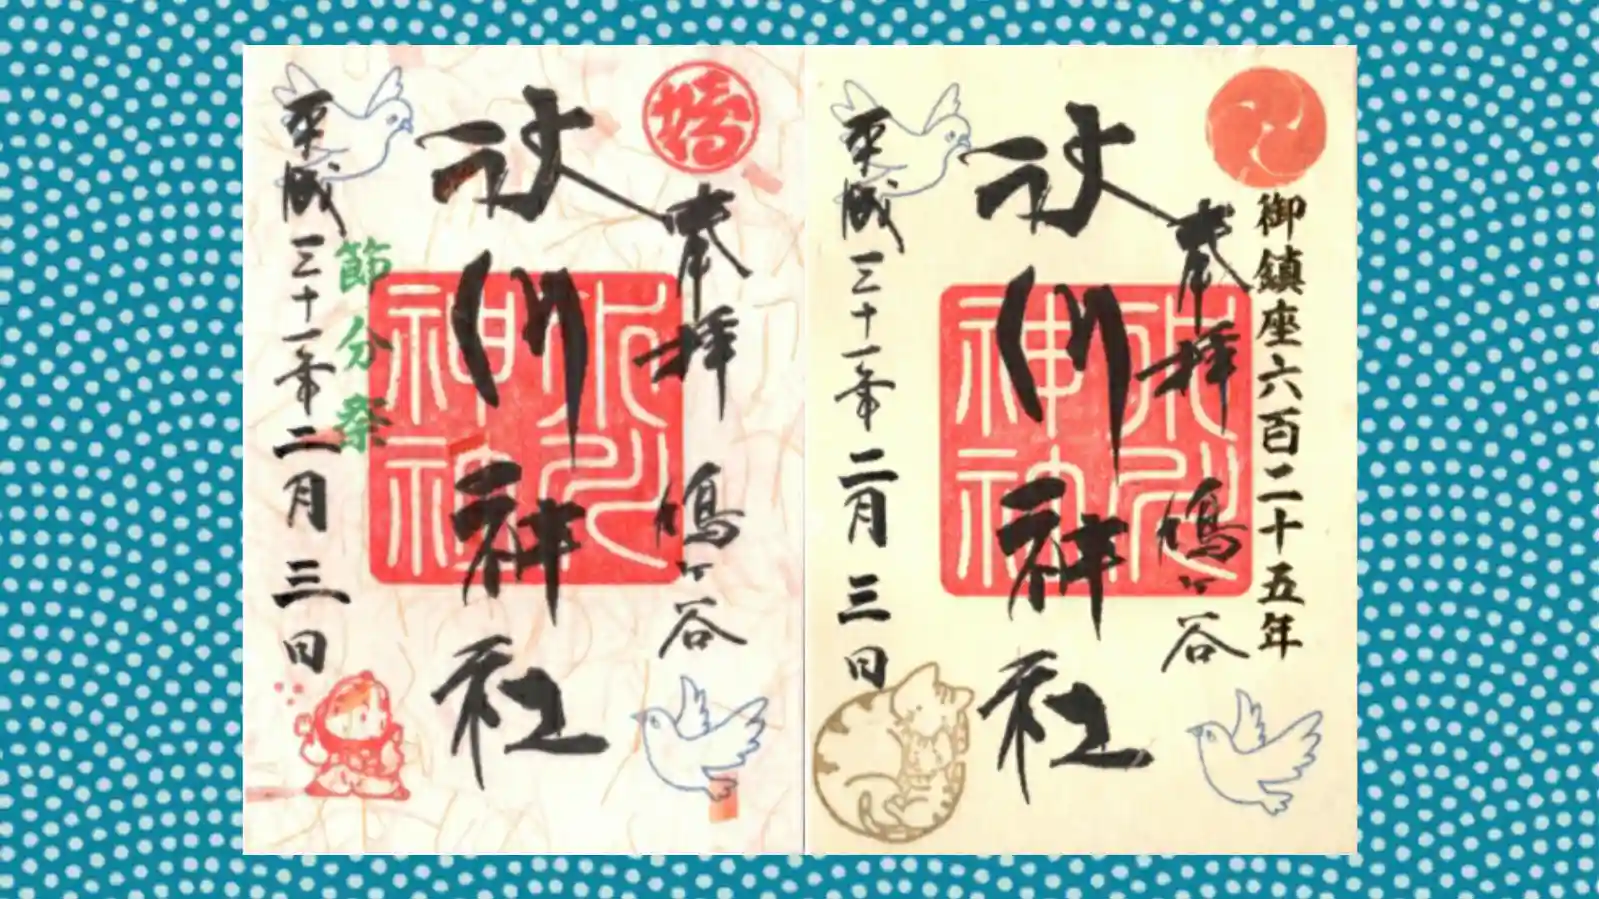 奉拝 鳩ヶ谷
氷川神社
氷川神社
節分祭
平成三十一年二月三日
御鎮座六百二十五年
奉拝 鳩ヶ谷
氷川神社
氷川神社
平成三十一年二月三日